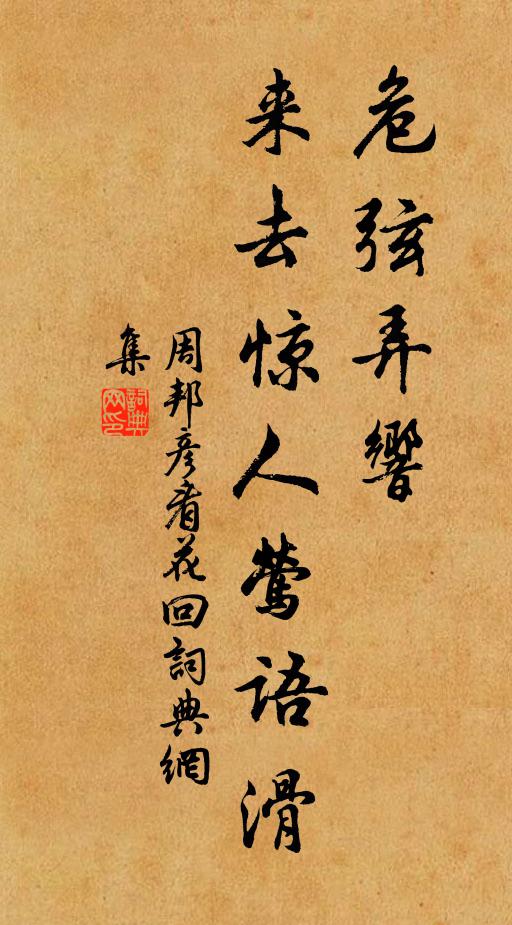 危弦弄響
来去惊人莺语滑
周邦彦看花回詞典網
集
詞典
网印